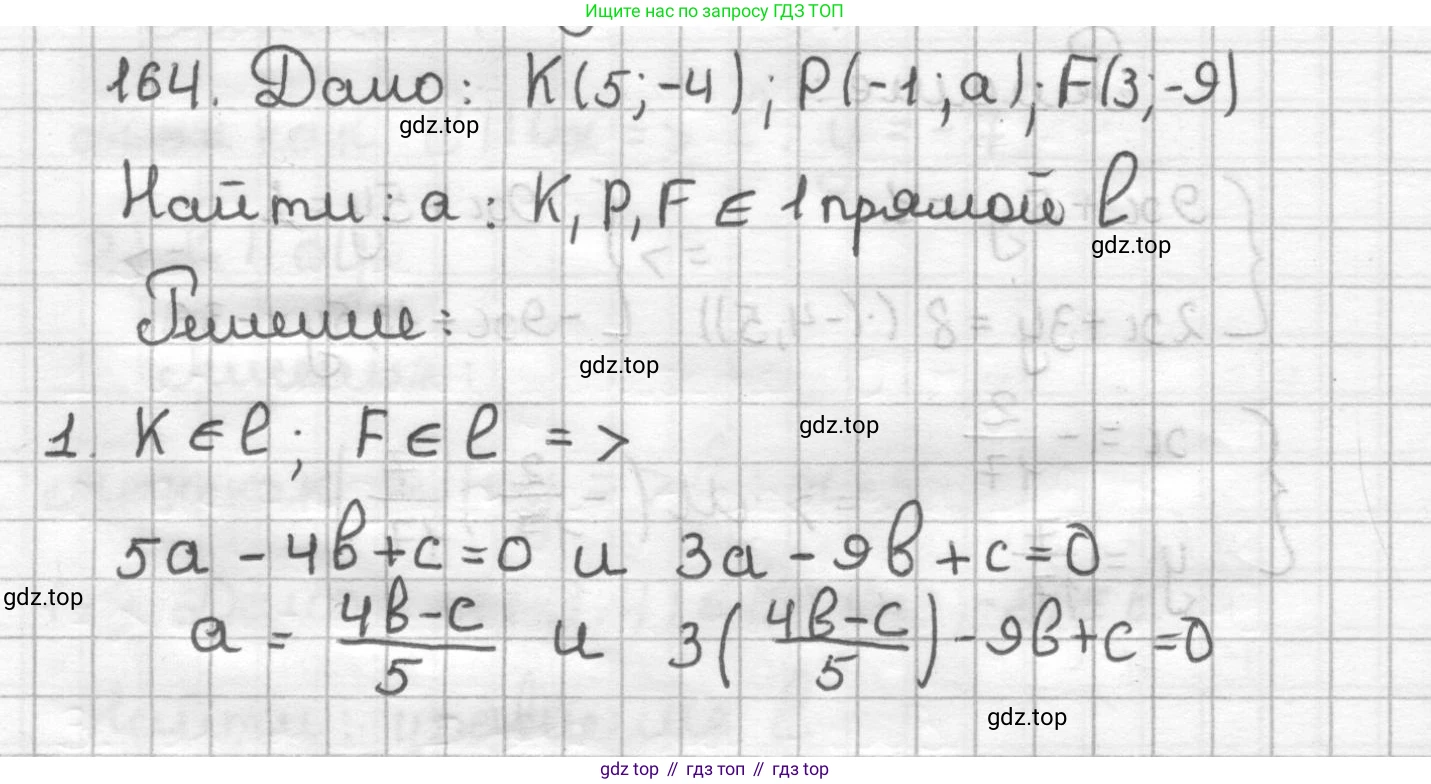 Ищите нас по запросу ГДЗ ТОП
164. Дано: K(5;-4); P(-1;a); F(3;-9)
gdz.top
Найти: a: K, P, F ∈ 1 прямой l
gdz.top
Решение:
gdz.top
gdz.top
1. K ∈ l; F ∈ l =>
5a - 4b + c = 0 и 3a - 9b + c = 0
gdz.top
a = (4b-c)/5 и 3((4b-c)/5) - 9b + c = 0
gdz.top
gdz top // гдз топ // гдз top